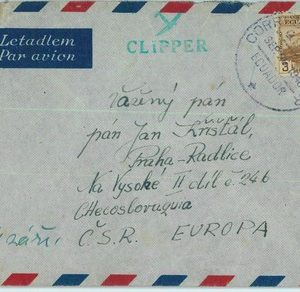 Letadlem
Par avion
CLIPPER
CORR
ECUADOR
Vážený pán
pán Jan Křišťál,
Praha-Radlice
Na Vysoké II díl č. 246
CHecosloruquia
Č.S.R. EUROPA
září